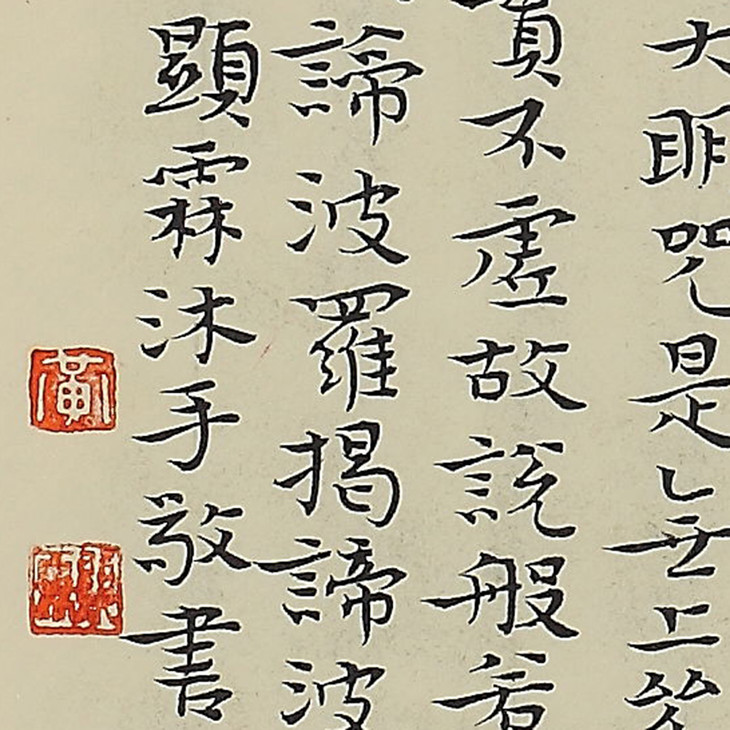 大明咒是乚无上咒
實不虛故說般若
諦波羅揭諦波
顯霖沐手敬書
黃